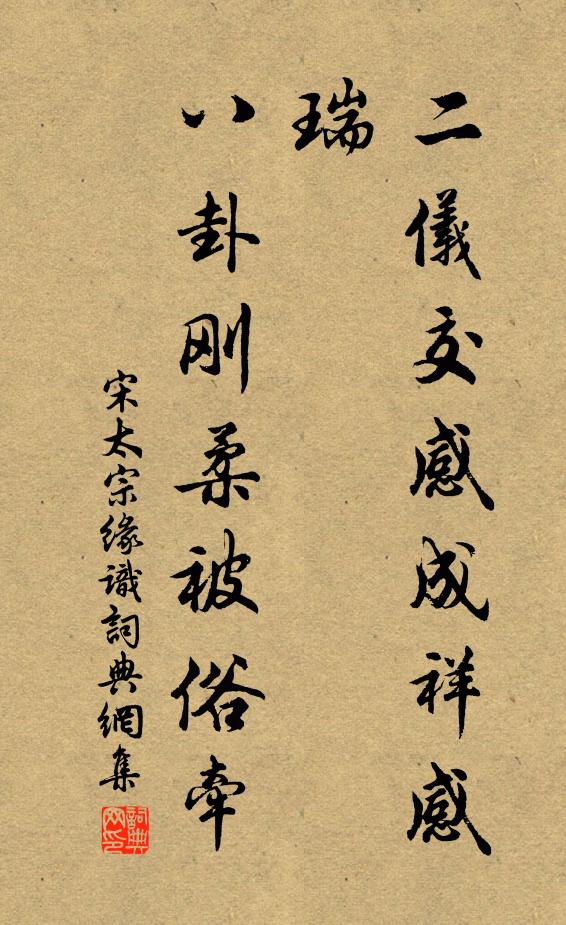 二儀交感成祥感
瑞
八卦刚柔被俗牵
宋太宗緣識詞典網集
詞典网印